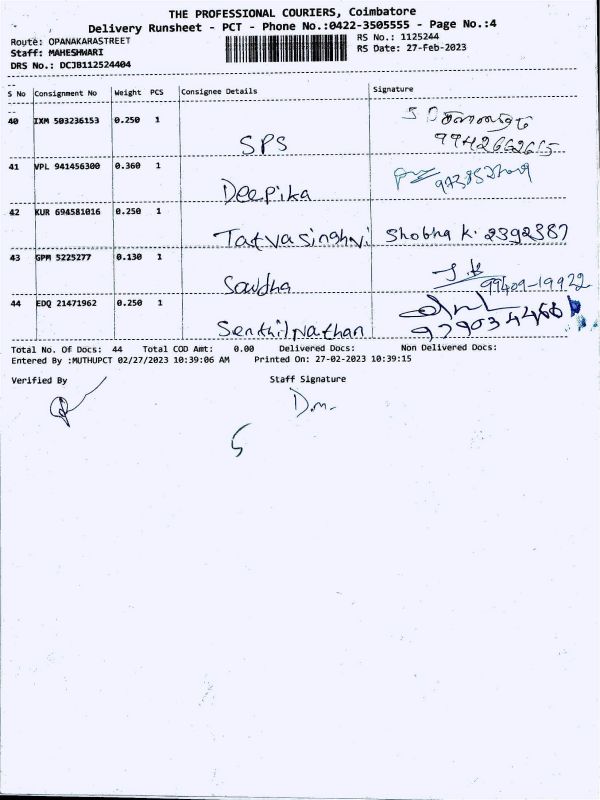 THE PROFESSIONAL COURIERS, Coimbatore
Delivery Runsheet - PCT - Phone No.:0422-3505555 - Page No.:4
Route: OPANAKARASTREET
RS No.: 1125244
Staff: MAHESHWARI
RS Date: 27-Feb-2023
DRS No.: DCJB112524404
S No Consignment No Weight PCS Consignee Details Signature
40 IXM 503236153 0.250 1
SPS
41 VPL 941456300 0.360 1
Deepika
42 KUR 694581016 0.250 1
Tatvasinghvi Shobha K. 2392387
43 GPM 5225277 0.130 1
Sawdha 99409-19922
44 EDQ 21471962 0.250 1
Senthilnathan
Total No. Of Docs: 44 Total COD Amt: 0.00 Delivered Docs: Non Delivered Docs:
Entered By :MUTHUPCT 02/27/2023 10:39:06 AM Printed On: 27-02-2023 10:39:15
Verified By Staff Signature
D.m.